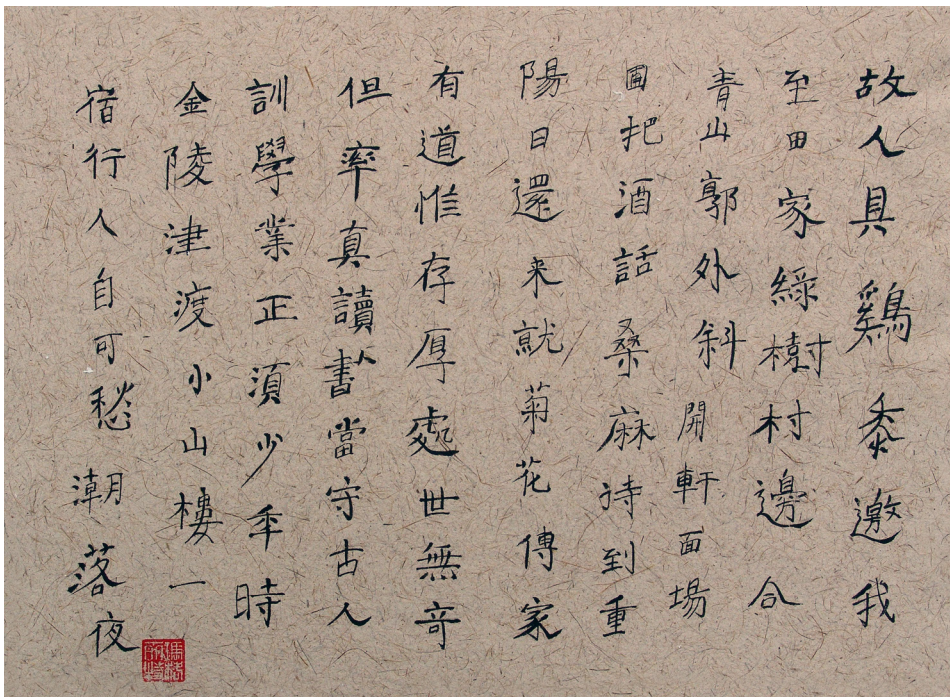 故人具鷄黍邀我
至田家綠樹村邊合
青山郭外斜開軒面場
圃把酒話桑麻待到重
陽日還来就菊花傳家
有道惟存厚處世無奇
但率真讀書當守古人
訓學業正須少年時
金陵津渡小山樓一
宿行人自可愁潮落夜